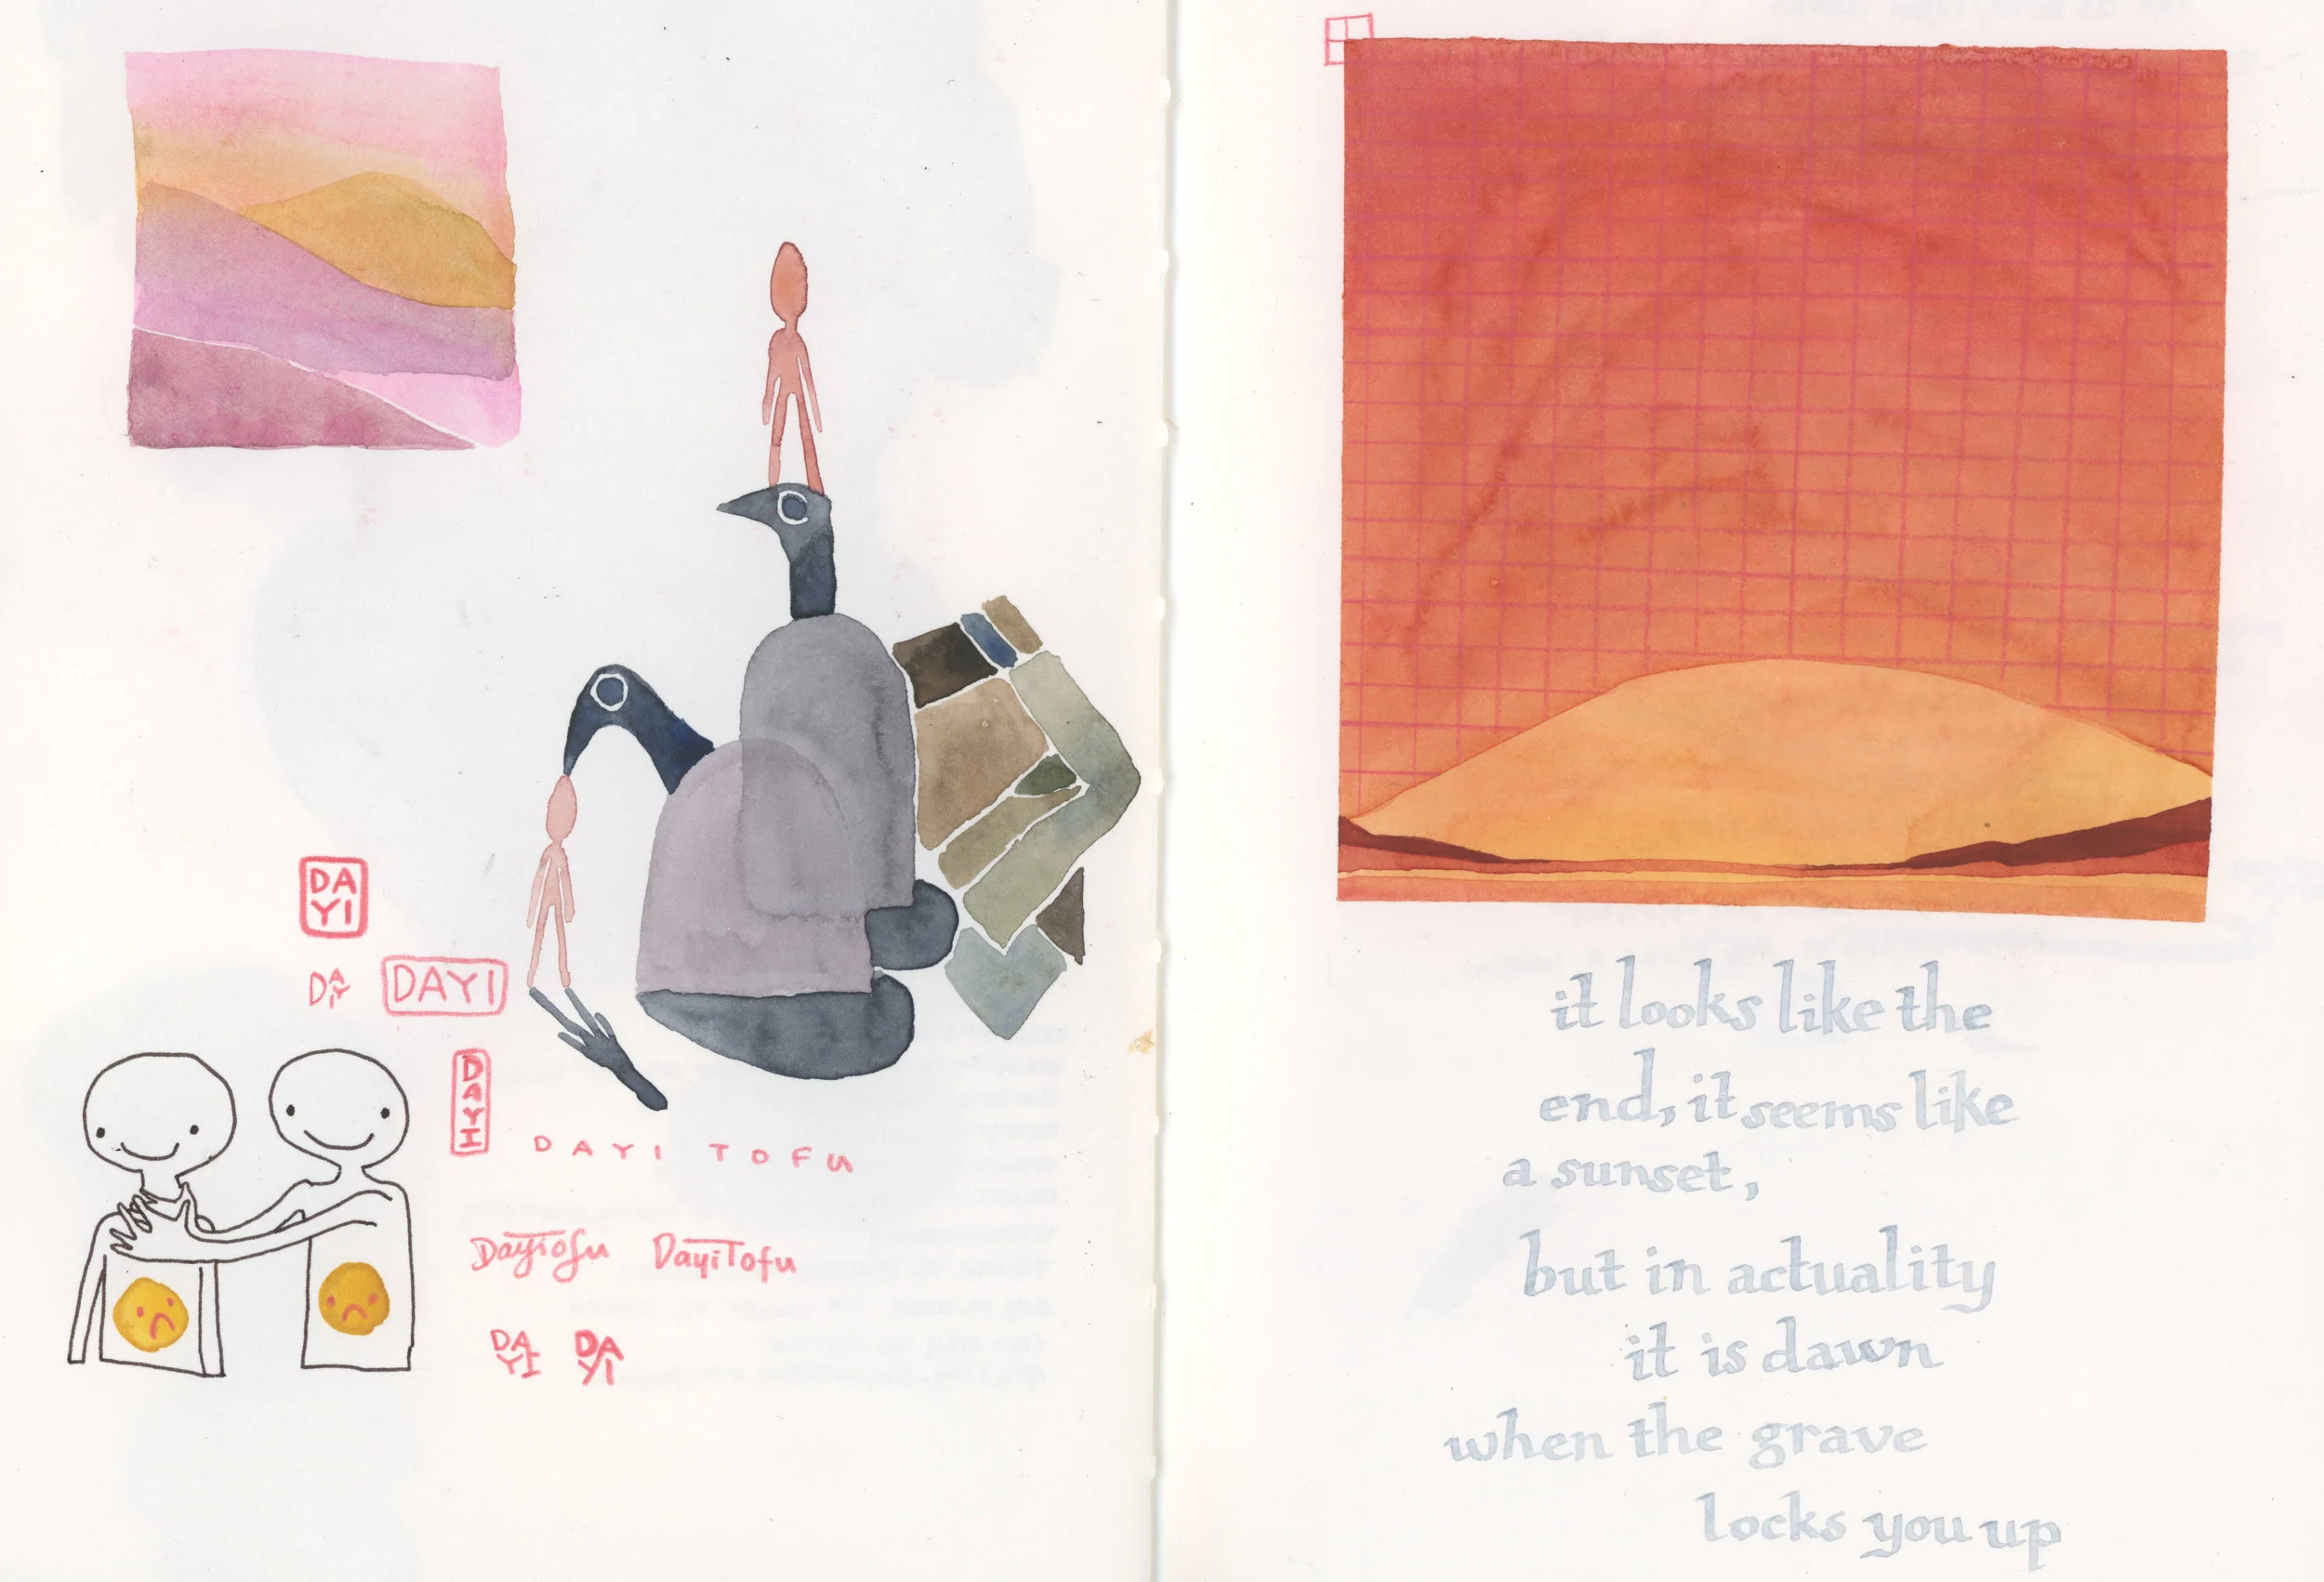 DA
YI
DAYI
DAYI
DAYI
DAYI TOFU
DayiTofu DayiTofu
DA
YI
DA
YI
it looks like the
end, it seems like
a sunset,
but in actuality
it is dawn
when the grave
locks you up